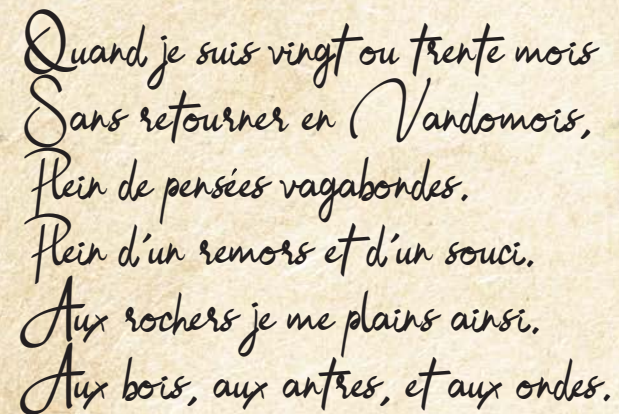 Quand je suis vingt ou trente mois
Sans retourner en Vandomois,
Plein de pensées vagabondes.
Plein d'un remors et d'un souci.
Aux rochers je me plains ainsi.
Aux bois, aux antres, et aux ondes.